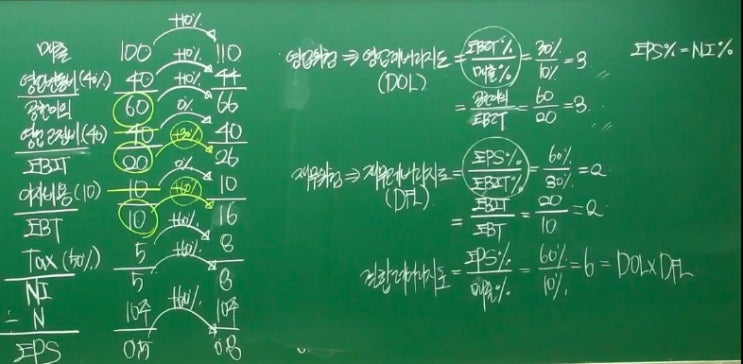 +10%
매출 100 +10% 110
영업변동비(40%) 40 +10% 44
공헌이익 60 0% 66
영업고정비(40) 40 +30% 40
EBIT 20 0% 26
이자비용(10) 10 +60% 10
EBT 10 +60% 16
Tax(50%) 5 +60% 8
NI 5 8
÷ N 10주 +60% 10주
EPS 0.5 0.8
영업위험 ⇒ 영업레버리지도 = EBIT% / 매출% = 30% / 10% = 3
(DOL)
= 공헌이익 / EBIT = 60 / 20 = 3
EPS% = NI%
재무위험 ⇒ 재무레버리지도 = EPS% / EBIT% = 60% / 30% = 2
(DFL)
= EBIT / EBT = 20 / 10 = 2
결합레버리지도 = EPS% / 매출% = 60% / 10% = 6 = DOL×DFL